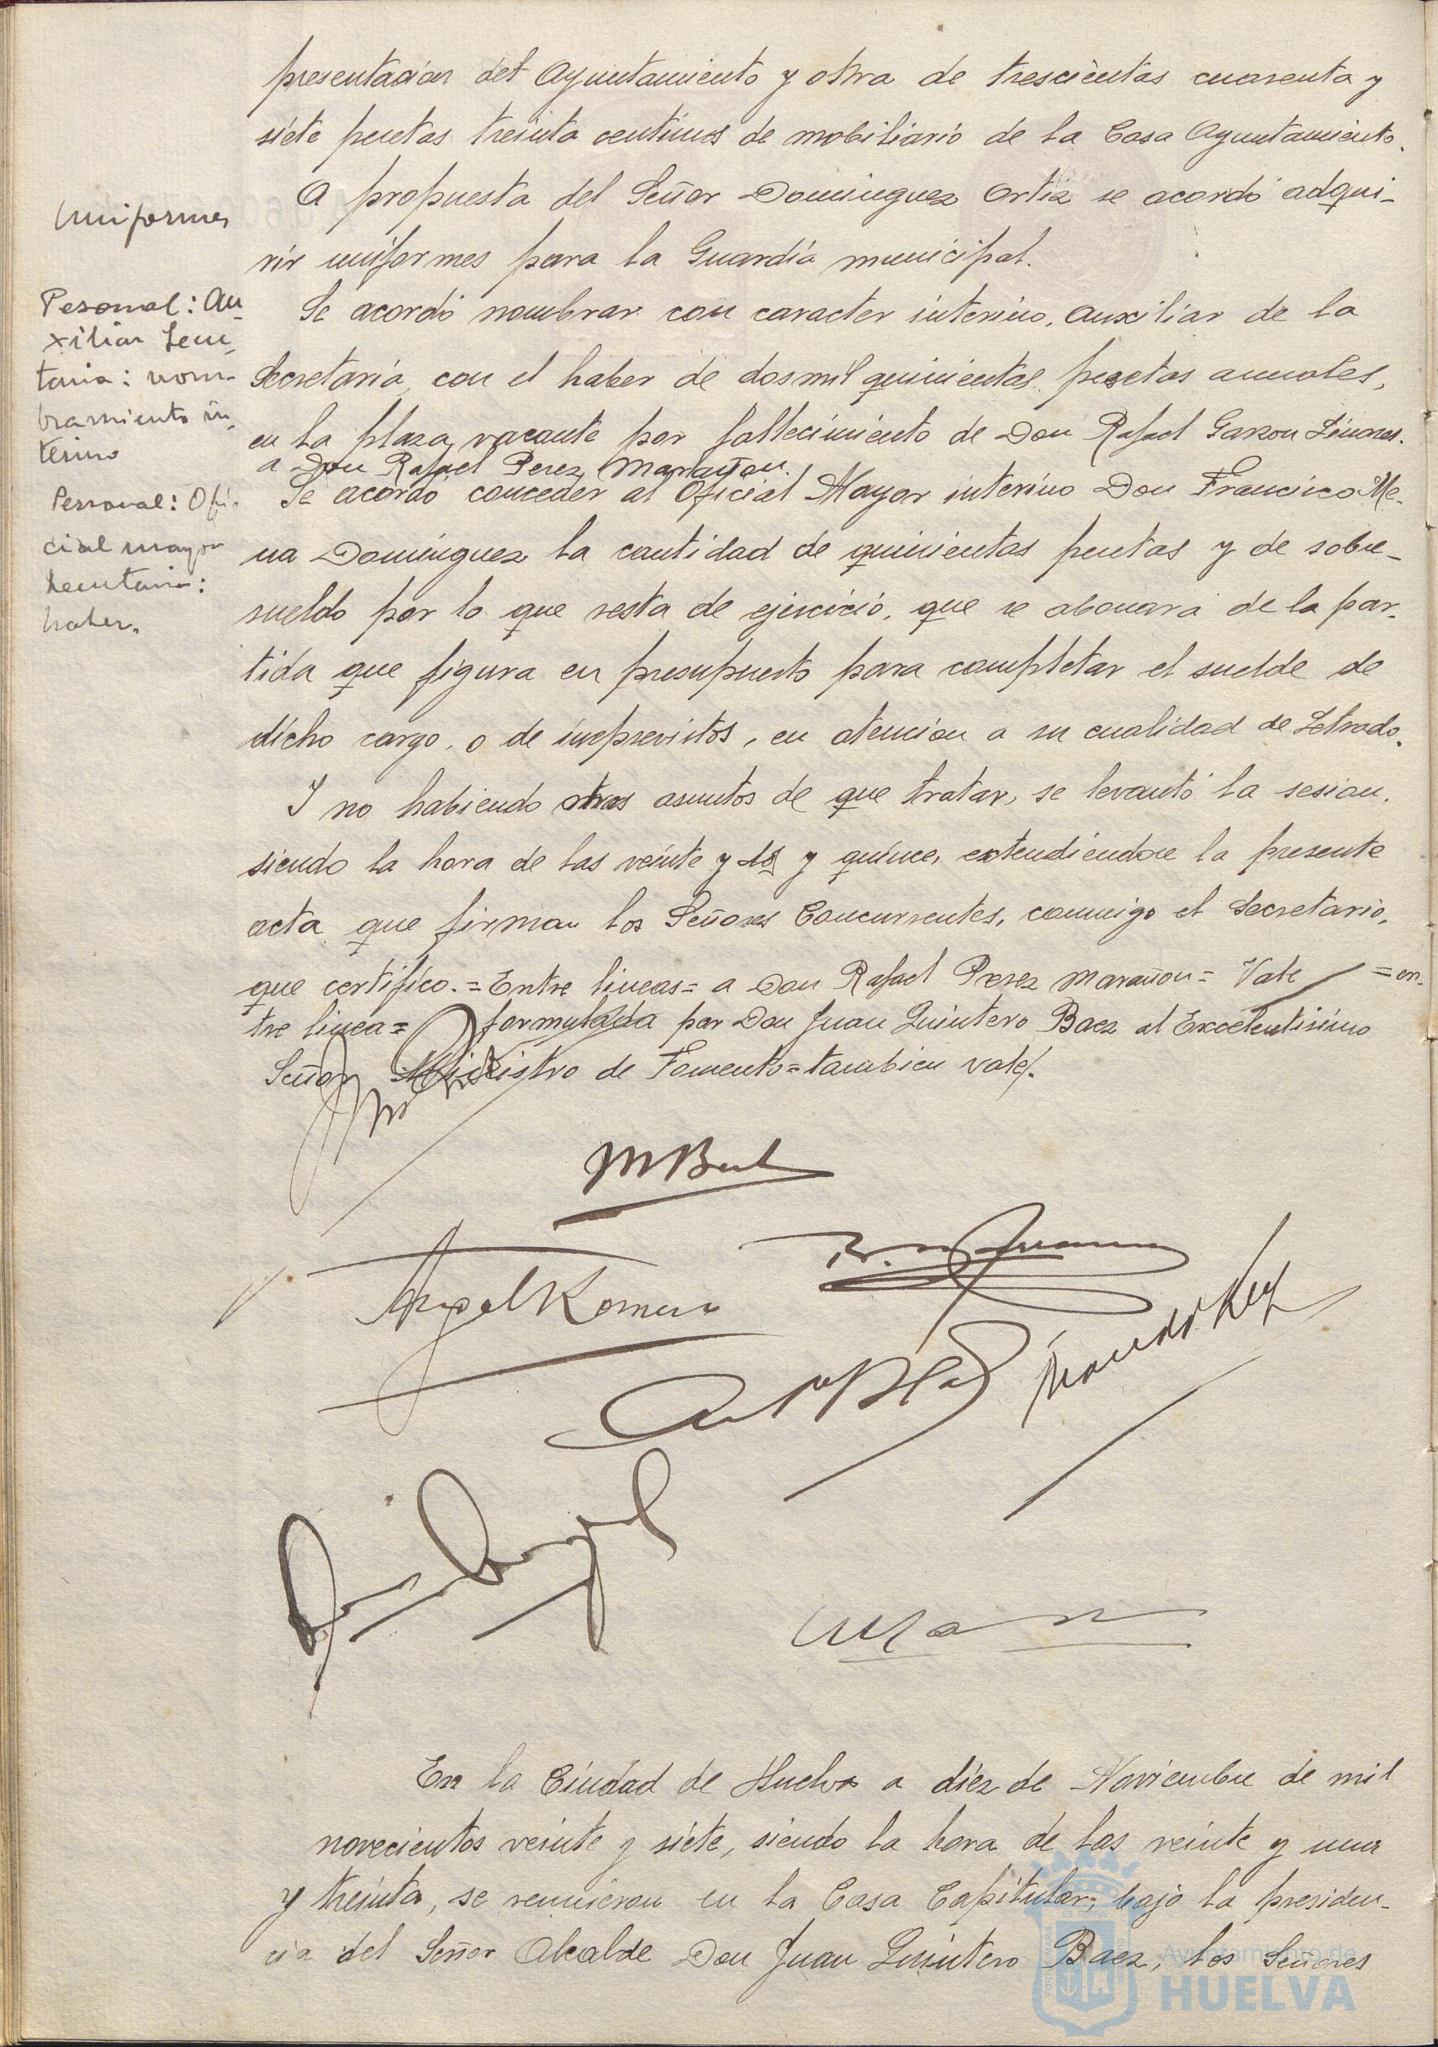 presentacion del Ayuntamiento y otra de trescientas cuarenta y
siete pesetas treinta centimos de mobiliario de la Casa Ayuntamiento.
Uniformes
A propuesta del Señor Dominguez Ortiz se acordó adqui-
rir uniformes para la Guardia municipal.
Pesonal: Au-
xiliar Secre-
taria: nom-
bramiento in-
terino
Se acordó nombrar con caracter interino, auxiliar de la
Secretaria, con el haber de dos mil quinientas pesetas anuales,
en la plaza vacante por fallecimiento de Don Rafael Garzon Linares.
a Don Rafael Perez Marañon.
Personal: Ofi-
cial mayor
Secretaria:
haber.
Se acordó conceder al Oficial Mayor interino Don Francisco Me-
na Dominguez la cantidad de quinientas pesetas y de sobre-
sueldo por lo que resta de ejercicio, que se abonará de la par-
tida que figura en presupuesto para completar el suelde de
dicho cargo, o de imprevistos, en atencion a su cualidad de Letrado.
Y no habiendo otros asuntos de que tratar, se levantó la sesion,
siendo la hora de las veinte y dos y quince, extendiendose la presente
acta que firman los Señores Concurrentes, conmigo el Secretario,
que certifico.=Entre lineas= a Don Rafael Perez Marañon= Vale =en-
tre linea= formulada por Don Juan Quintero Baez al Excelentisimo
Señor Ministro de Fomento=tambien vale.
Angel Romero
En la Ciudad de Huelva a diez de Noviembre de mil
novecientos veinte y siete, siendo la hora de las veinte y una
y treinta, se reunieron en la Casa Capitular, bajo la presiden-
cia del Señor Alcalde Don Juan Quintero Baez, los Señores
Ayuntamiento de
HUELVA